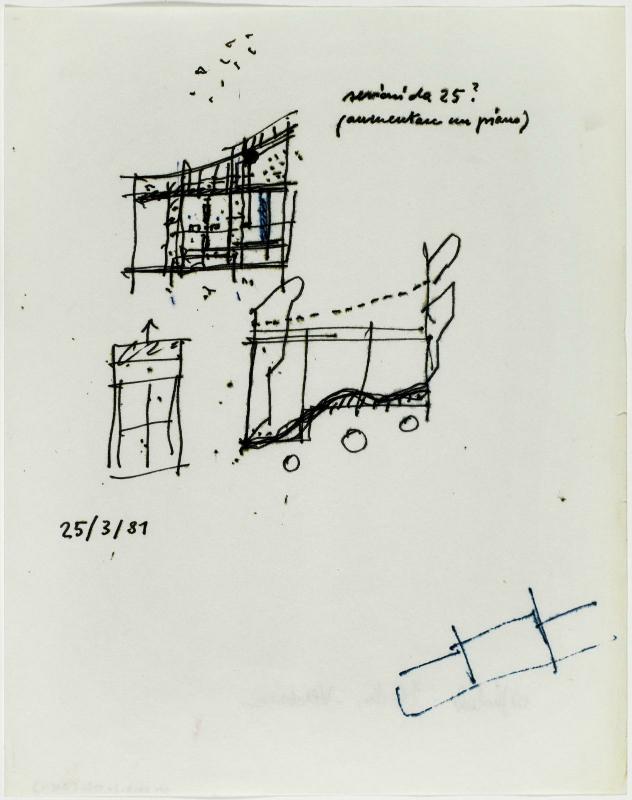 servizi da 25?
(aumentare un piano)
25/3/81